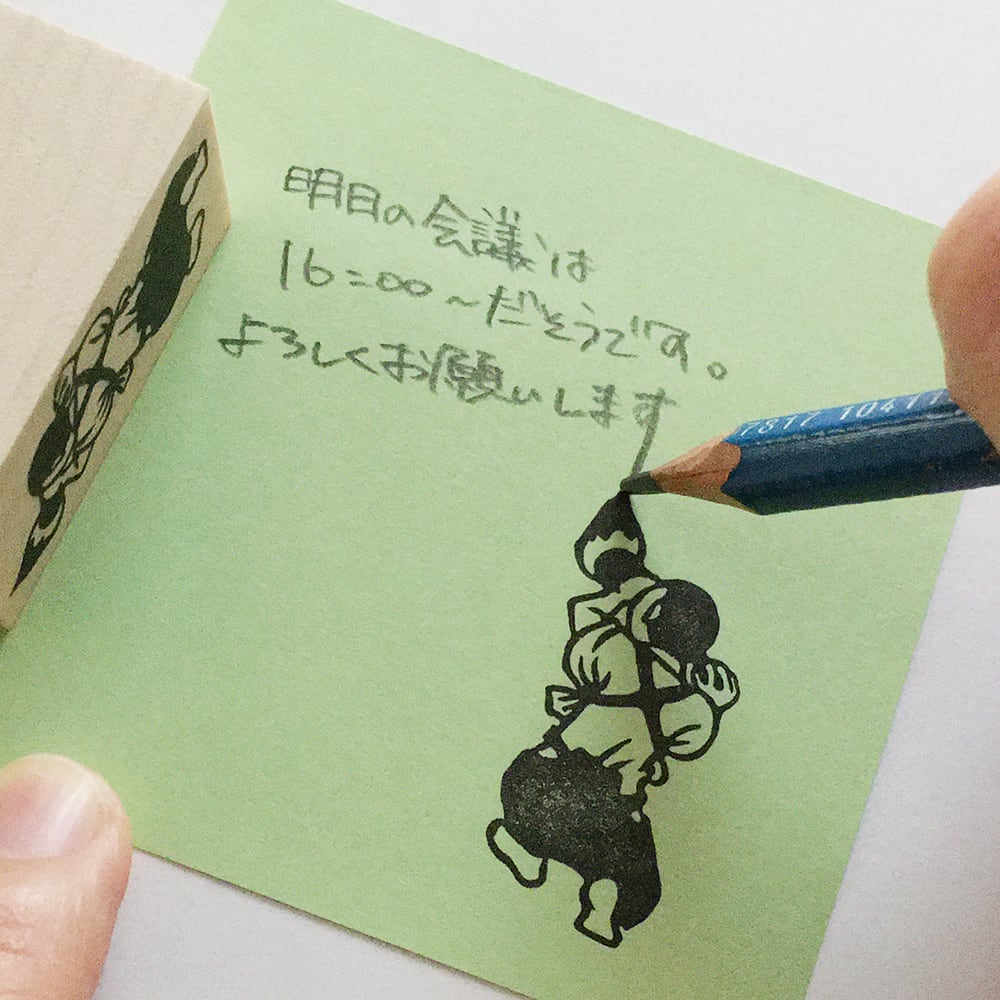 明日の会議は
16:00〜だそうです。
よろしくお願いします
7817 10411